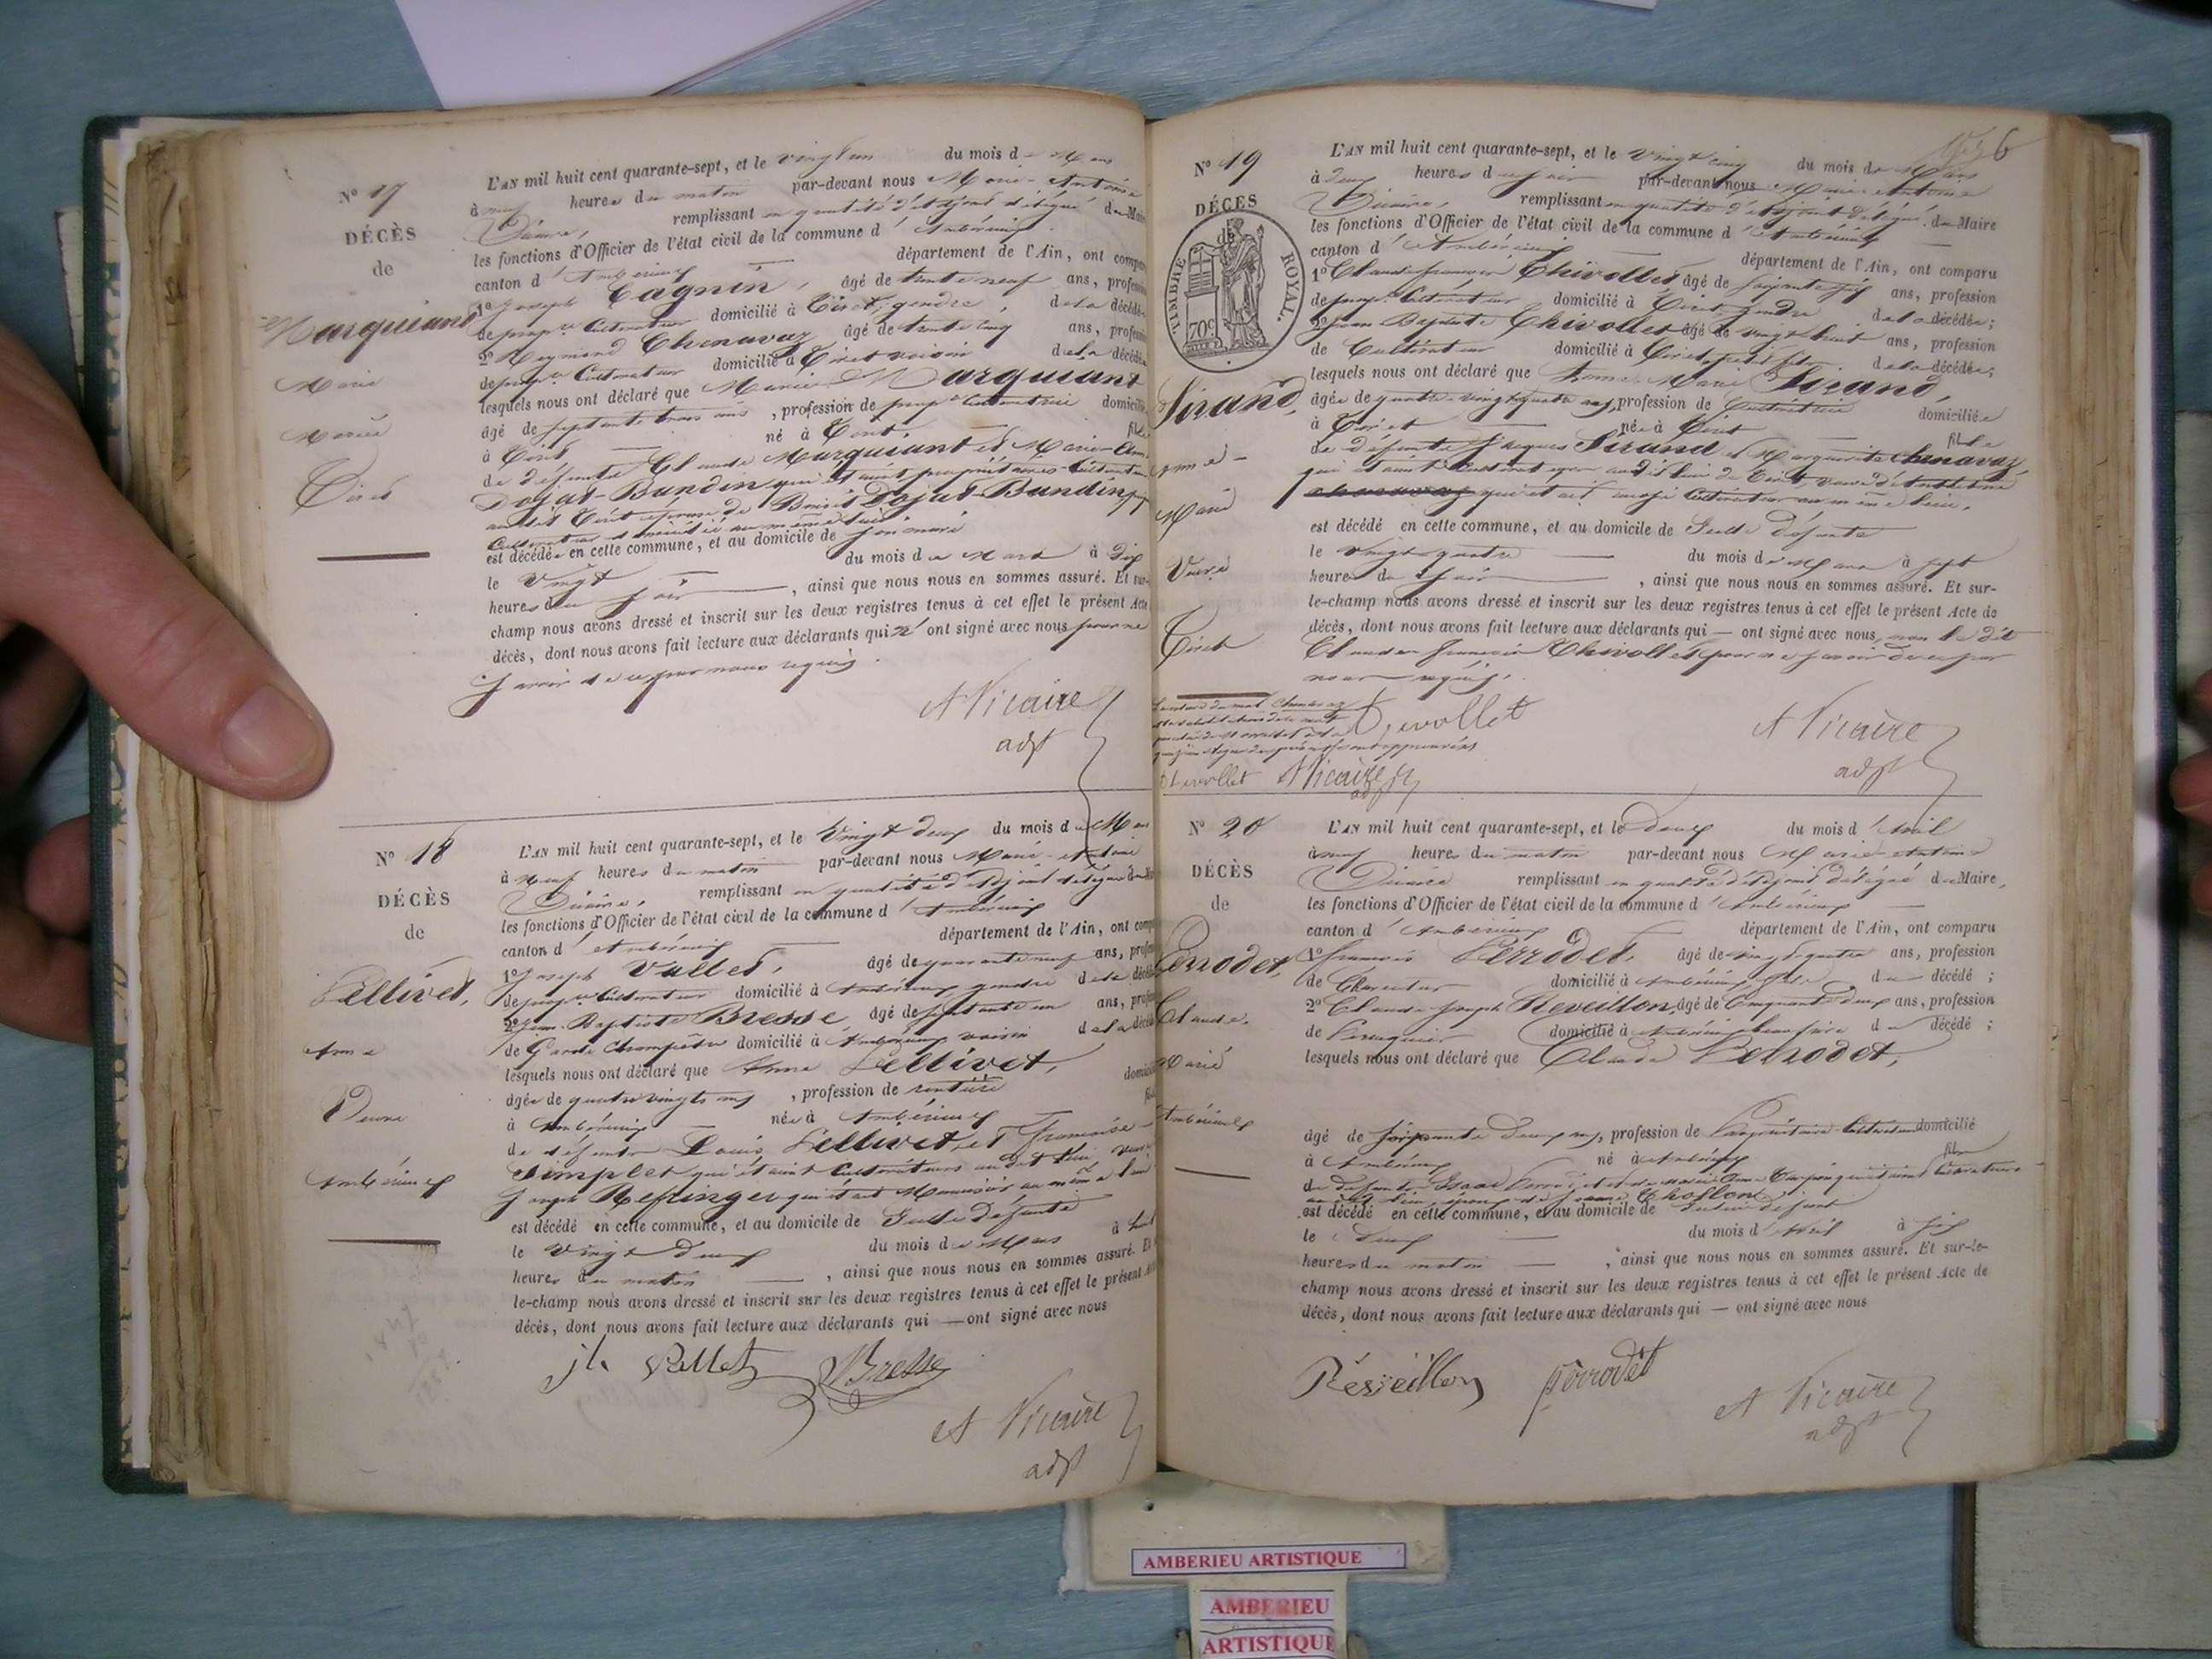 N° 17
DÉCÈS
de
Marquiand
Marie
Mariée
Tiret
L'AN mil huit cent quarante-sept, et le vingt un du mois de Mars
à neuf heures du matin par-devant nous Marie-Antoine
Vicaire, remplissant en qualité d'adjoint délégué du Maire
les fonctions d'Officier de l'état civil de la commune d'Ambérieux
canton d'Ambérieux département de l'Ain, ont comparu
1° Joseph Cagnin, âgé de trente neuf ans, profession
de prop.re Cultivateur domicilié à Tiret, gendre de la décédée
2° Reymond Chenavaz âgé de trente cinq ans, profession
de prop.re Cultivateur domicilié à Tiret voisin de la décédée
lesquels nous ont déclaré que Marie Marquiant
âgé de septante trois ans, profession de prop.re Cultivatrice domiciliée
à Tiret né à Tiret fille
de défunts Claude Marquiant et Marie-
Dojat-Bundin qui étaient propriétaires Cultivateurs
audit Tiret épouse de Benoit Dojat-Bundin
Cultivateur domicilié au même lieu
est décédée en cette commune, et au domicile de son mari
le vingt du mois de Mars à dix
heures du soir, ainsi que nous nous en sommes assuré. Et sur-
champ nous avons dressé et inscrit sur les deux registres tenus à cet effet le présent Acte
décès, dont nous avons fait lecture aux déclarants qui n'ont signé avec nous pour ne
savoir de ce par nous requis.
A Vicaire
adjt
N° 18
DÉCÈS
de
Pellivet,
Anne
Veuve
Ambérieux
L'AN mil huit cent quarante-sept, et le vingt deux du mois de Mars
à neuf heures du matin par-devant nous Marie-Antoine
Vicaire, remplissant en qualité d'adjoint délégué du
les fonctions d'Officier de l'état civil de la commune d'Ambérieux
canton d'Ambérieux département de l'Ain, ont comp
1° Joseph Vallet, âgé de quarante neuf ans, profess
de prop.re Cultivateur domicilié à Ambérieux gendre de la décéd
2° Jean-Baptiste Bresse, âgé de septante un ans, profess
de Garde Champêtre domicilié à Ambérieux voisin de la décéd
lesquels nous ont déclaré que Anne Pellivet,
âgée de quatre vingts ans, profession de rentière domicil
à Ambérieux née à Ambérieux fille
de défunts Louis Pellivet et Françoise
Simplet qui étaient Cultivateurs audit lieu veuve
Joseph Refringer qui était Menuisier au même lieu
est décédé en cette commune, et au domicile de Ladite défunte
le vingt deux du mois de Mars à huit
heures du matin, ainsi que nous nous en sommes assuré. Et
le-champ nous avons dressé et inscrit sur les deux registres tenus à cet effet le présent
décès, dont nous avons fait lecture aux déclarants qui — ont signé avec nous
Vallet Bresse
A Vicaire
adjt
6
N° 19
DÉCÈS
de
TIMBRE ROYAL.
70c
Sirand,
Anne-
Marie
Veuve
Tiret
L'AN mil huit cent quarante-sept, et le vingt cinq du mois de Mars
à deux heures du soir par-devant nous Marie-Antoine
Vicaire, remplissant en qualité d'adjoint délégué du Maire
les fonctions d'Officier de l'état civil de la commune d'Ambérieux
canton d'Ambérieux département de l'Ain, ont comparu
1° Claude françois Chivollet âgé de soixante six ans, profession
de prop.re Cultivateur domicilié à Tiret gendre de la décédée;
2° Jean Baptiste Chivollet âgé de vingt huit ans, profession
de Cultivateur domicilié à Tiret petit fils de la décédée;
lesquels nous ont déclaré que Anne-Marie Sirand,
âgée de quatre-vingt quatre ans, profession de Cultivatrice domiciliée
à Tiret née à Tiret fille
de défunts Jacques Sirand et Marguerite Chenavaz,
qui étaient Cultivateurs audit lieu de Tiret veuve
qui était aussi Cultivateur au même lieu.
est décédé en cette commune, et au domicile de Ladite défunte
le vingt quatre du mois de Mars à sept
heures du soir, ainsi que nous nous en sommes assuré. Et sur-
le-champ nous avons dressé et inscrit sur les deux registres tenus à cet effet le présent Acte de
décès, dont nous avons fait lecture aux déclarants qui — ont signé avec nous, non le dit
Claude françois Chivollet pour ne savoir de ce par
nous requis.
Chivollet
A Vicaire
adjt
Chivollet A Vicaire
adjt
N° 20
DÉCÈS
de
Perrodet,
Claude.
Marié
Ambérieux
L'AN mil huit cent quarante-sept, et le deux du mois d'Avril
à neuf heures du matin par-devant nous Marie-Antoine
Vicaire remplissant en qualité d'adjoint délégué du Maire,
les fonctions d'Officier de l'état civil de la commune d'Ambérieux
canton d'Ambérieux département de l'Ain, ont comparu
1° françois Perrodet, âgé de vingt quatre ans, profession
de Charretier domicilié à Ambérieux fils du décédé;
2° Claude Joseph Reveillon, âgé de Cinquante deux ans, profession
de Perruquier domicilié à Ambérieux beau frère du décédé;
lesquels nous ont déclaré que Claude Perrodet,
âgé de soixante deux ans, profession de Propriétaire-Cultivateur domicilié
à Ambérieux né à Ambérieux fils
au dit lieu époux de
est décédé en cette commune, et au domicile de Ledit défunt
le deux du mois d'Avril à six
heures du matin, ainsi que nous nous en sommes assuré. Et sur-le-
champ nous avons dressé et inscrit sur les deux registres tenus à cet effet le présent Acte de
décès, dont nous avons fait lecture aux déclarants qui — ont signé avec nous
Réveillon Perrodet
A Vicaire
adjt
AMBERIEU ARTISTIQUE
AMBERIEU
ARTISTIQUE